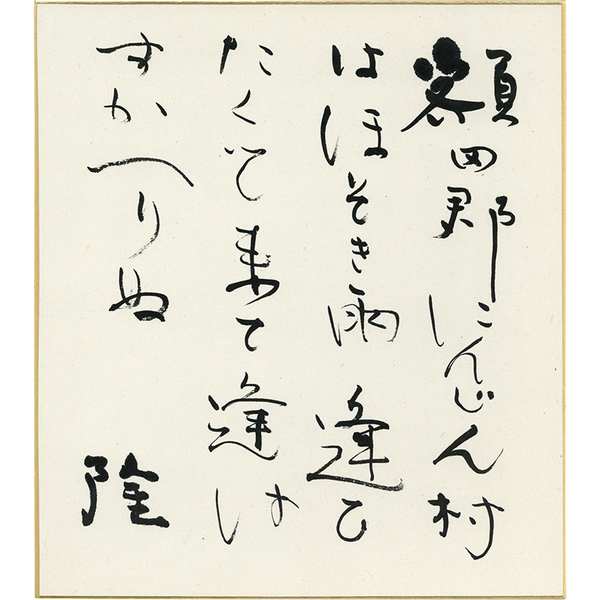 額田郡にんじん村
はほそき雨 逢ひ
たくて来て逢は
すかへりぬ
隆